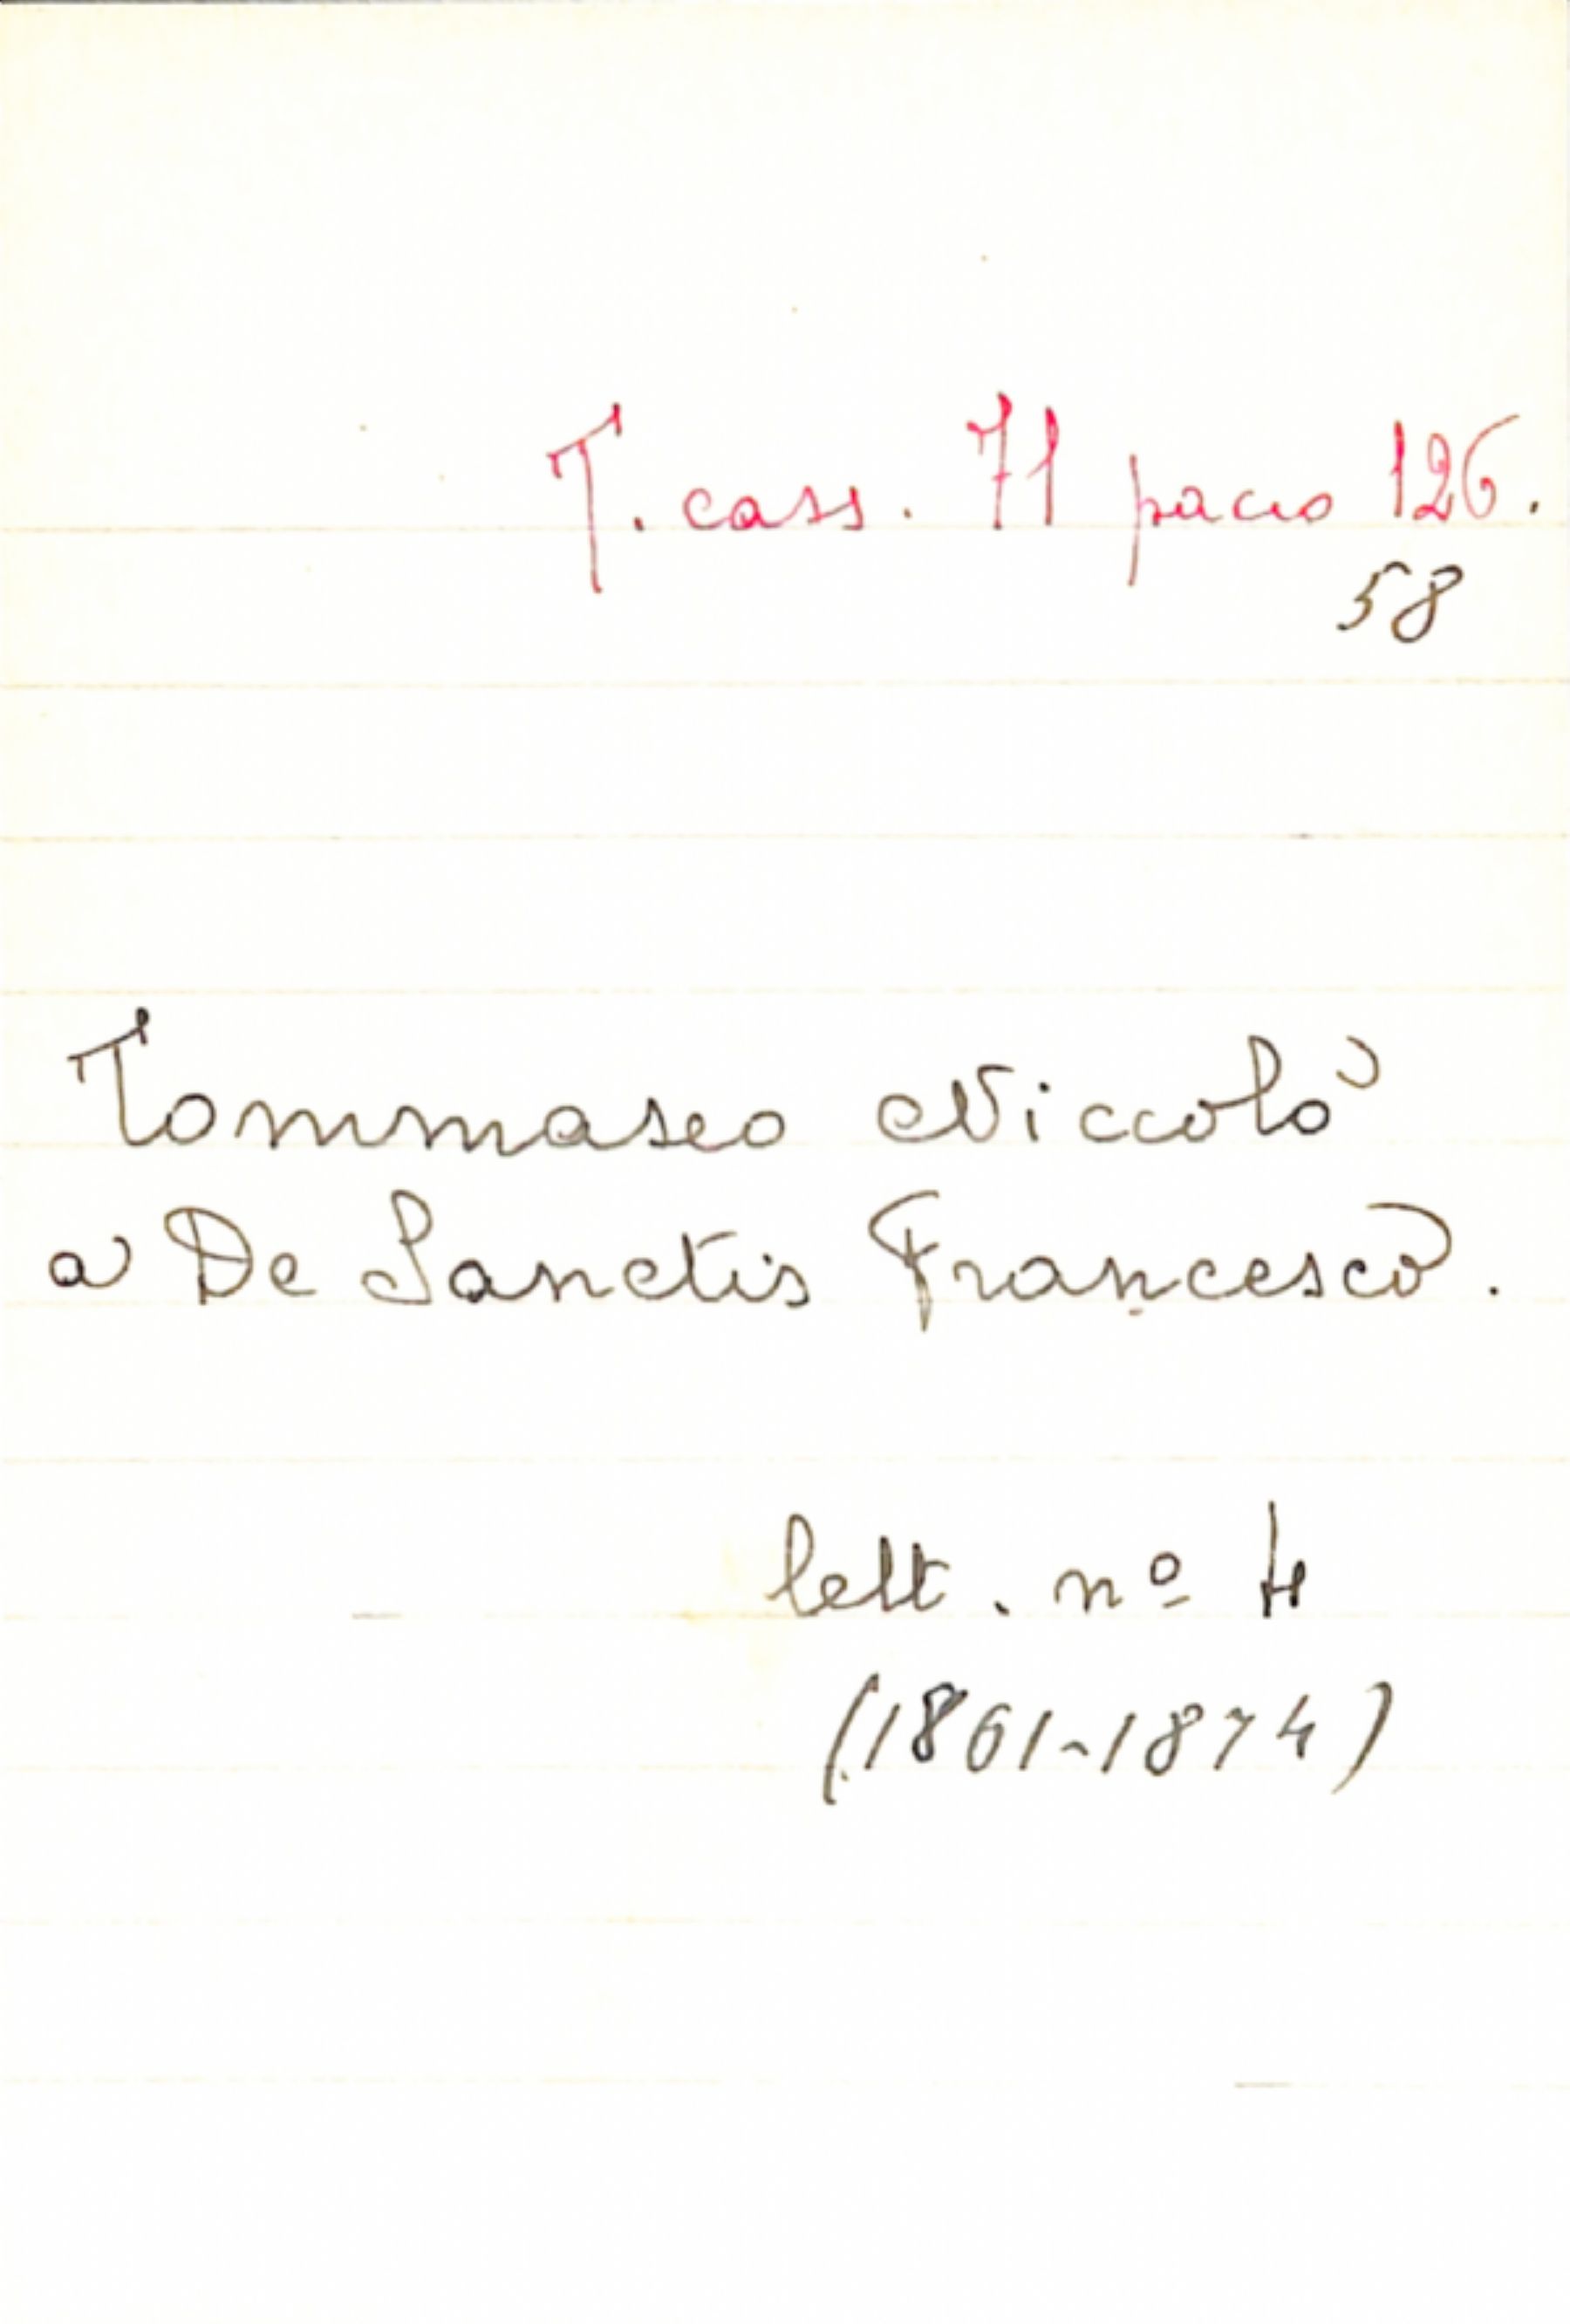 T. cass. 71 pacco 126.
58
Tommaseo Niccolò
a De Sanctis Francesco.
lett. nº 4
(1861-1874)